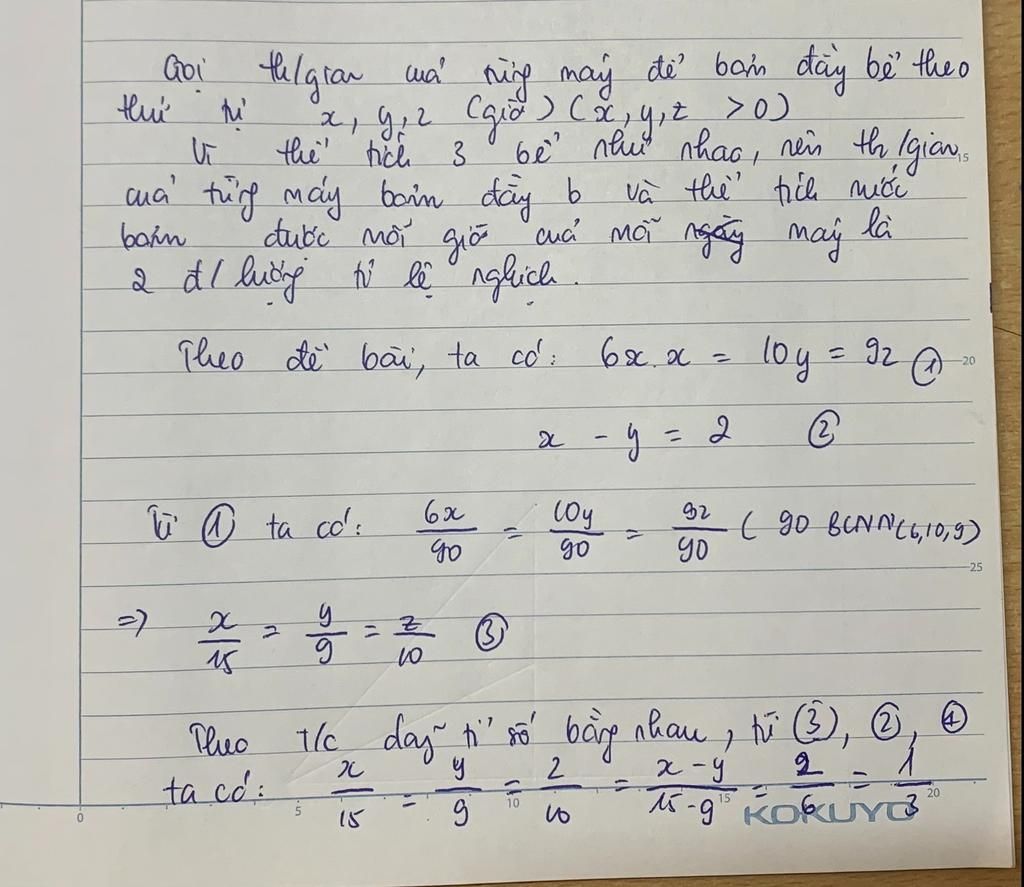 Gọi th/gian của từng máy để bơm đầy bể theo
thứ tự x, y, z (giờ) (x, y, z > 0)
Vì thể tích 3 bể như nhau, nên th/gian
15
của từng máy bơm đầy b và thể tích nước
bơm được mỗi giờ của mỗi ngày máy là
2 đ/lượng tỉ lệ nghịch.
Theo đề bài, ta có: 6x.x = 10y = 9z ①
20
x - y = 2 ②
Từ ① ta có: 6x/90 = 10y/90 = 9z/90 ( 90 BCNN(6,10,9)
25
=> x/15 = y/9 = z/10 ③
Theo T/c dãy tỉ số bằng nhau, từ ③, ②, ①
ta có: x/15 = y/9 = z/10 = x-y/15-9 = 2/6 = 1/3
0 5 10 15 20
KOKUYO